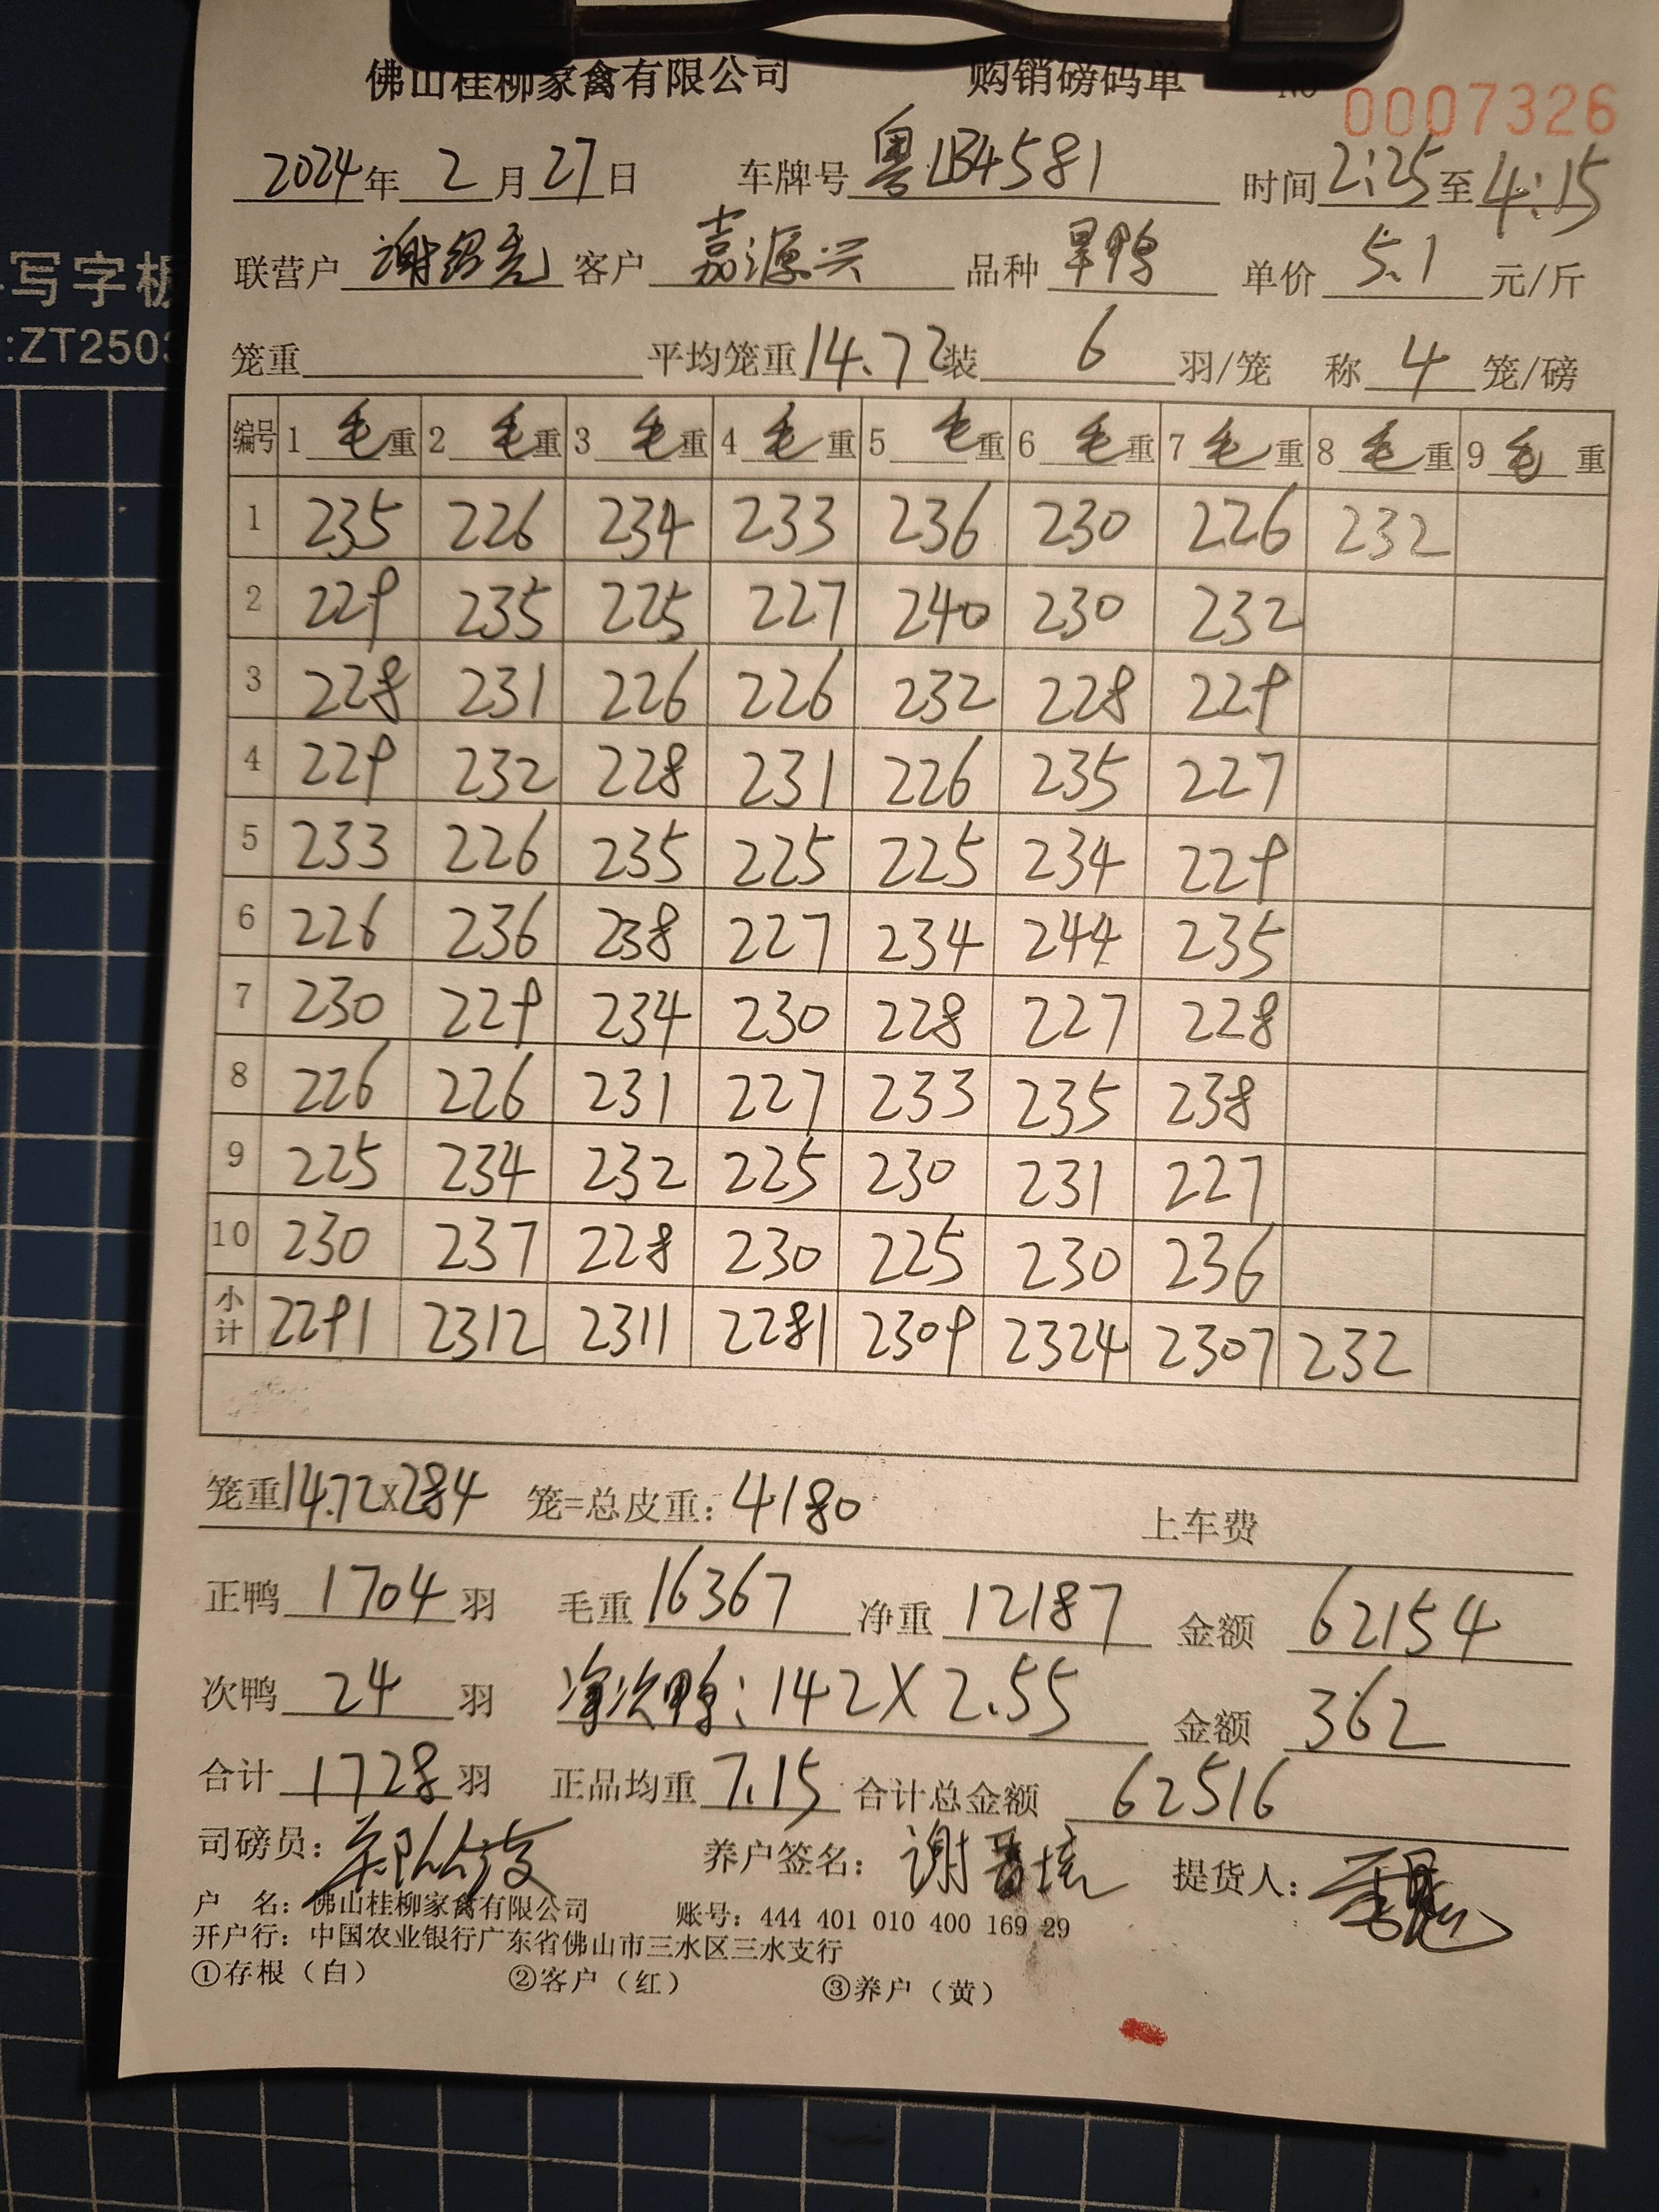 佛山桂柳家禽有限公司 购销磅码单 No 0007326
2024年 2月27日 车牌号 粤LB4581 时间2:25至4:15
写字板
:ZT2503
联营户 谢绍亮 客户 嘉源兴 品种 旱鸭 单价 5.1 元/斤
笼重 平均笼重14.72装 6 羽/笼 称 4 笼/磅
编号 1 毛重 2 毛重 3 毛重 4 毛重 5 毛重 6 毛重 7 毛重 8 毛重 9 毛重
1 235 226 234 233 236 230 226 232
2 229 235 225 227 240 230 232
3 228 231 226 226 232 228 229
4 229 232 228 231 226 235 227
5 233 226 235 225 225 234 229
6 226 236 238 227 234 244 235
7 230 229 234 230 228 227 228
8 226 226 231 227 233 235 238
9 225 234 232 225 230 231 227
10 230 237 228 230 225 230 236
小计 2291 2312 2311 2281 2309 2324 2307 232
笼重14.72x284 笼=总皮重:4180 上车费
正鸭 1704 羽 毛重 16367 净重 12187 金额 62154
次鸭 24 羽 净次鸭:142X2.55 金额 362
合计 1728 羽 正品均重 7.15 合计总金额 62516
司磅员: 养户签名: 谢 提货人:
户 名:佛山桂柳家禽有限公司 账号:444 401 010 400 169 29
开户行:中国农业银行广东省佛山市三水区三水支行
①存根(白) ②客户(红) ③养户(黄)